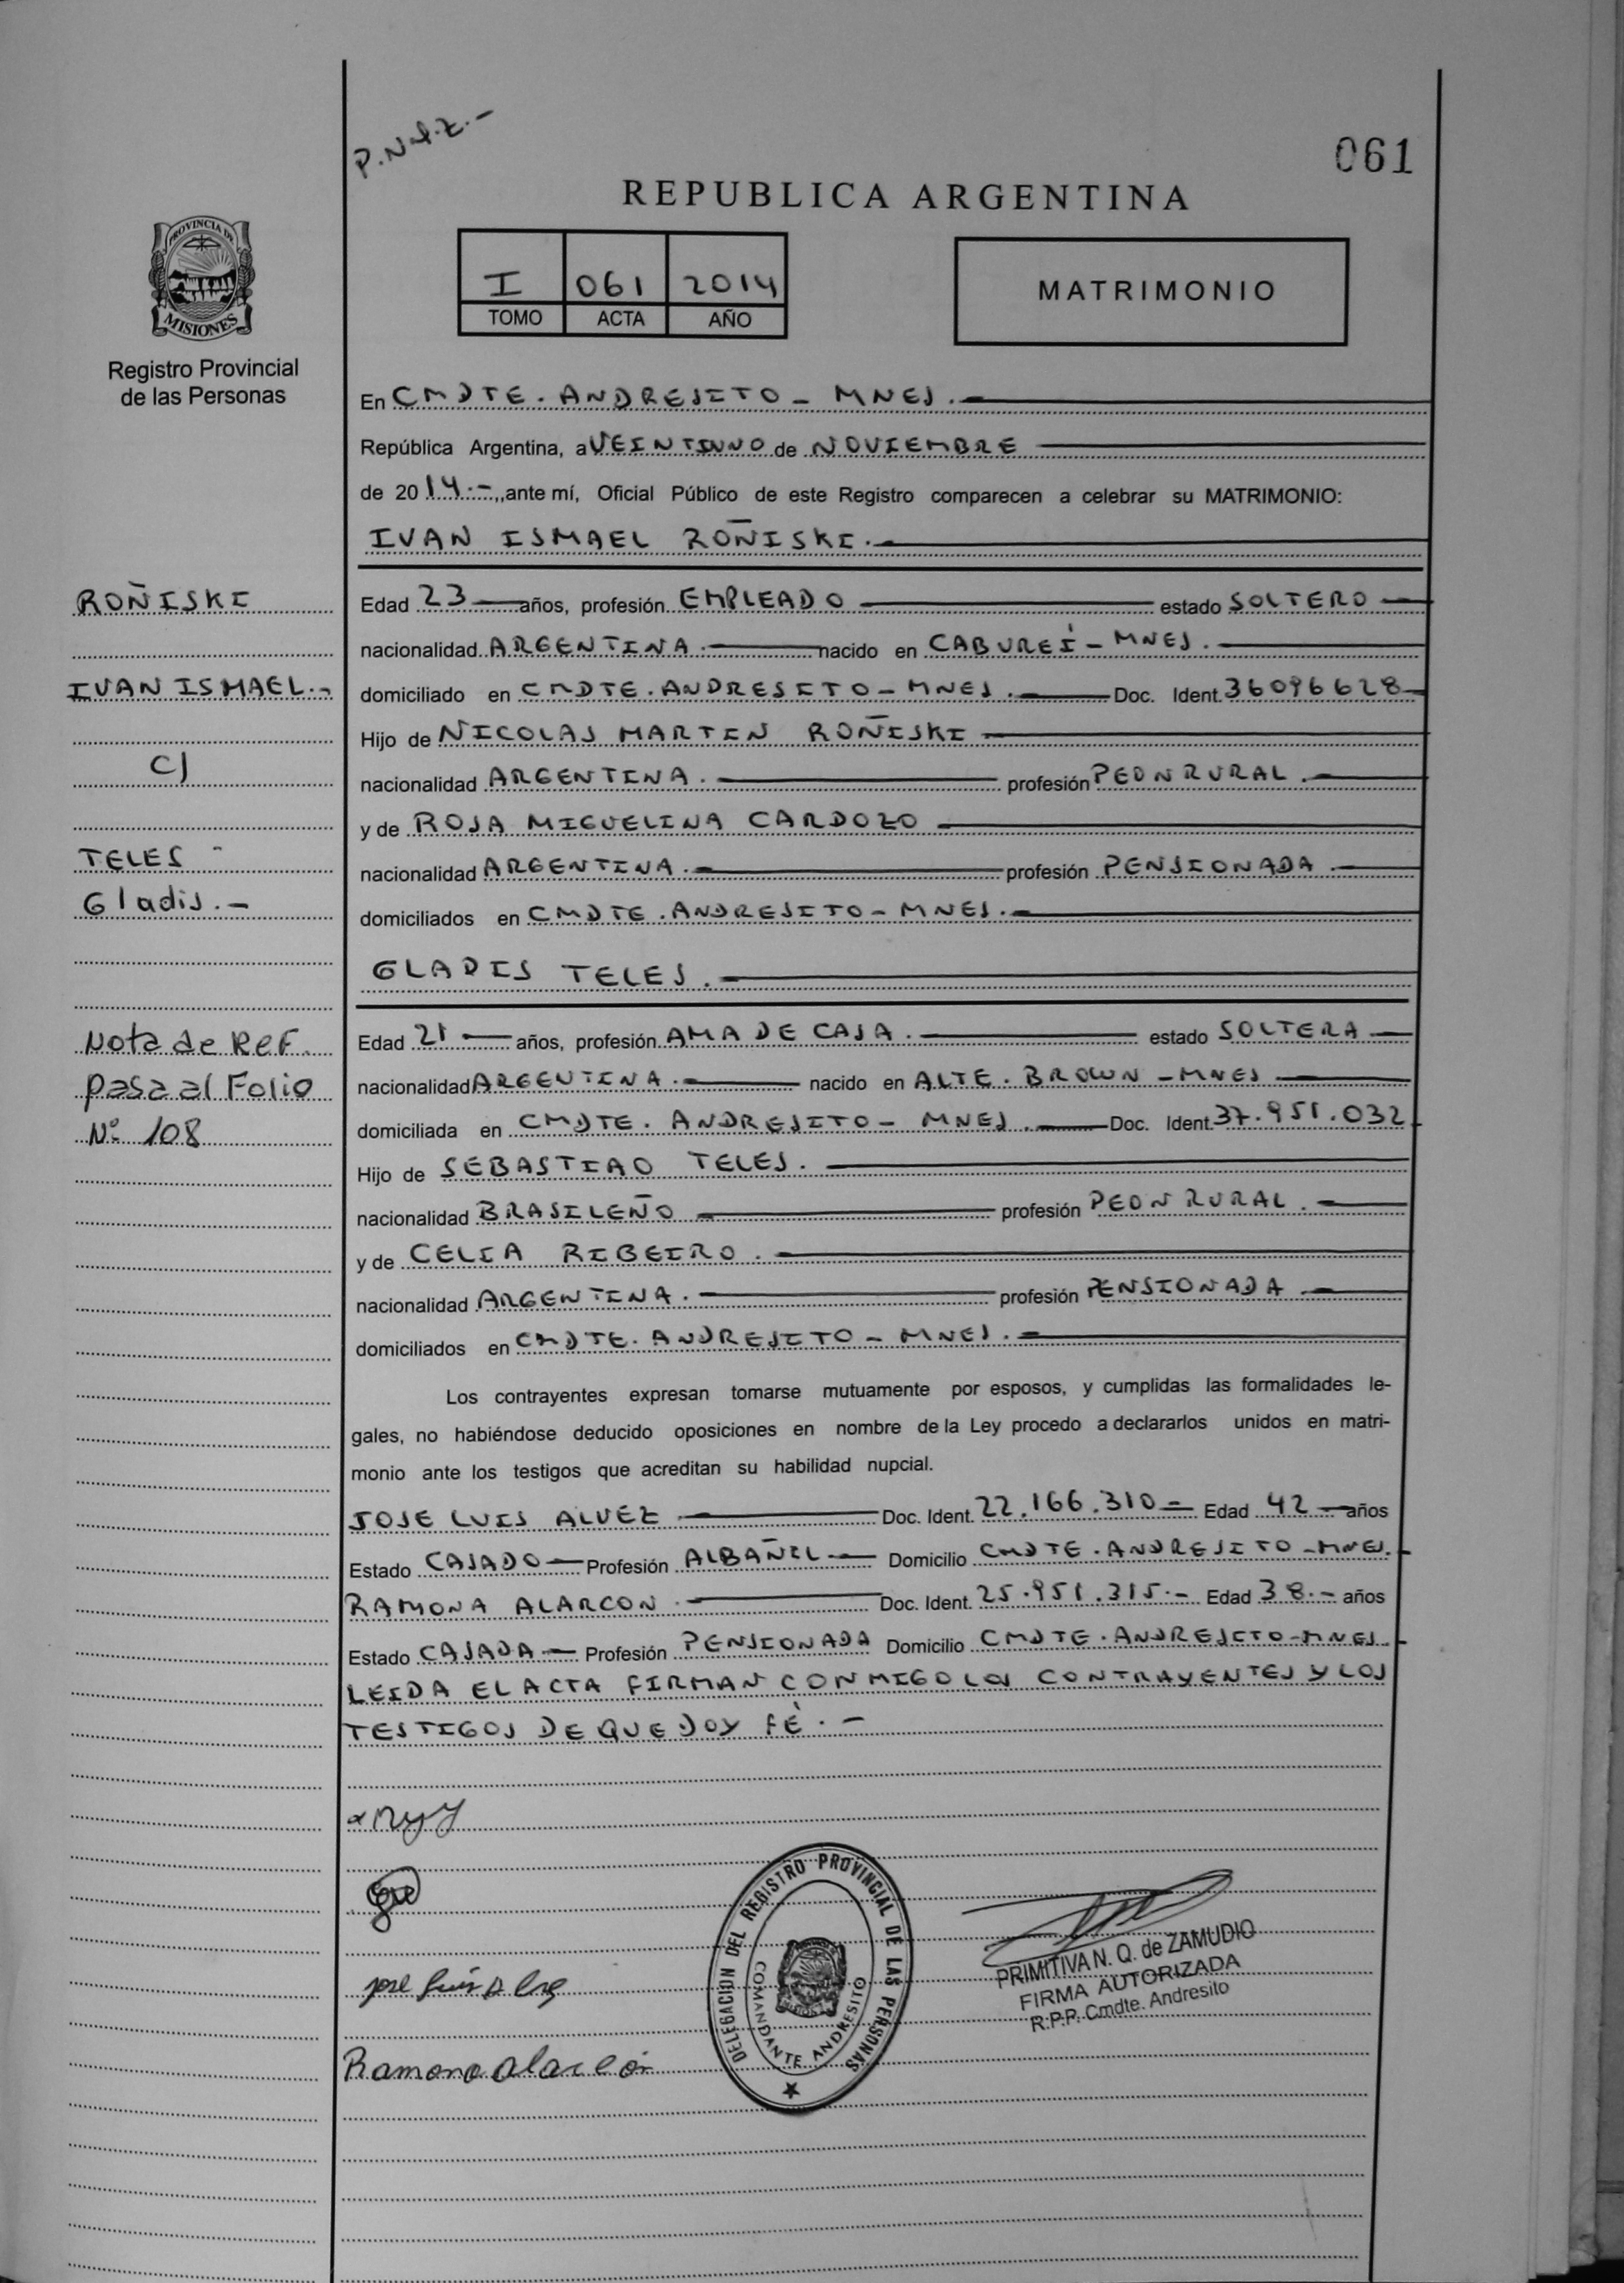 P.N.
061
REPUBLICA ARGENTINA
I 061 2014
TOMO ACTA AÑO
MATRIMONIO
PROVINCIA DE
MISIONES
Registro Provincial
de las Personas
En CMDTE. ANDRESITO - MNES. -
República Argentina, a VEINTIUNO de NOVIEMBRE
de 2014.-, ante mí, Oficial Público de este Registro comparecen a celebrar su MATRIMONIO:
IVAN ISMAEL ROÑISKI. -
ROÑISKI
IVAN ISMAEL.-
C/
TELES -
Gladis.-
Nota de Ref.
pasa al Folio
Nº 108
Edad 23 años, profesión EMPLEADO estado SOLTERO
nacionalidad ARGENTINA. nacido en CABUREÍ - MNES.
domiciliado en CMDTE. ANDRESITO - MNES. Doc. Ident. 36096628
Hijo de NICOLAS MARTIN ROÑISKI
nacionalidad ARGENTINA. profesión PEON RURAL.
y de ROSA MIGUELINA CARDOZO
nacionalidad ARGENTINA. profesión PENSIONADA.
domiciliados en CMDTE. ANDRESITO - MNES. -
GLADIS TELES.
Edad 21 años, profesión AMA DE CASA. estado SOLTERA
nacionalidad ARGENTINA. nacido en ALTE. BROWN - MNES
domiciliada en CMDTE. ANDRESITO - MNES. Doc. Ident. 37.951.032
Hijo de SEBASTIAO TELES.
nacionalidad BRASILEÑO profesión PEON RURAL.
y de CELIA RIBEIRO.
nacionalidad ARGENTINA. profesión PENSIONADA
domiciliados en CMDTE. ANDRESITO - MNES. -
Los contrayentes expresan tomarse mutuamente por esposos, y cumplidas las formalidades le-
gales, no habiéndose deducido oposiciones en nombre de la Ley procedo a declararlos unidos en matri-
monio ante los testigos que acreditan su habilidad nupcial.
JOSE LUIS ALVEZ Doc. Ident. 22.166.310 - Edad 42 años
Estado CASADO Profesión ALBAÑIL Domicilio CMDTE. ANDRESITO - MNES.
RAMONA ALARCON. Doc. Ident. 25.951.315.- Edad 38.- años
Estado CASADA Profesión PENSIONADA Domicilio CMDTE. ANDRESITO - MNES.
LEIDA EL ACTA FIRMAN CONMIGO LOS CONTRAYENTES Y LOS
TESTIGOS DE QUE DOY FÉ. -
DELEGACION DEL REGISTRO PROVINCIAL DE LAS PERSONAS
COMANDANTE ANDRESITO
PRIMITIVA N. Q. de ZAMUDIO
FIRMA AUTORIZADA
R.P.P. Cmdte. Andresito
Ramona Alarcón